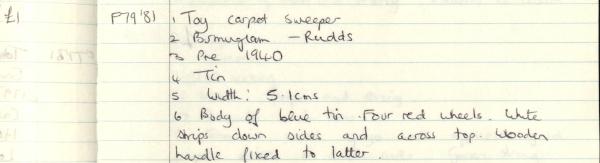 £1
P79'81 1 Toy carpet sweeper
2 Birmingham - Rudds
3 Pre 1940
4 Tin
5 Width: 5.1cms
6 Body of blue tin. Four red wheels. White
strips down sides and across top. Wooden
handle fixed to latter.